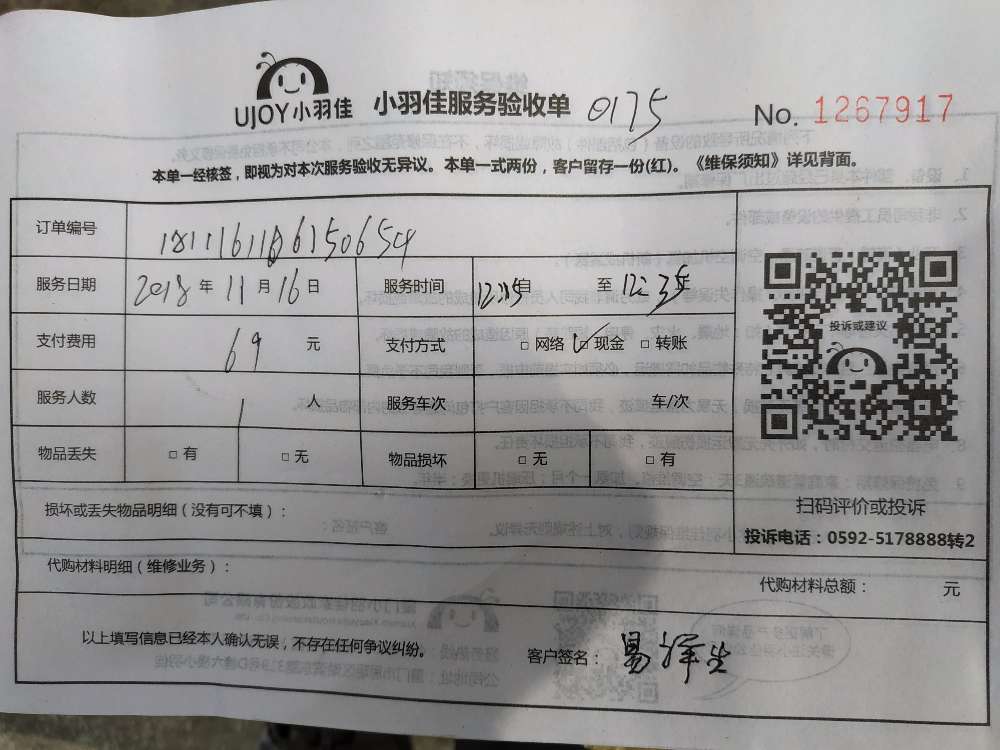 UJOY小羽佳 小羽佳服务验收单 0175 No. 1267917
本单一经核签，即视为对本次服务验收无异议。本单一式两份，客户留存一份(红)。《维保须知》详见背面。
订单编号
服务日期 2018 年 11 月 16 日 服务时间 12:15 自 至 12:35
支付费用 69 元 支付方式 □ 网络 □ 现金 □ 转账
服务人数 1 人 服务车次 车/次
物品丢失 □ 有 □ 无 物品损坏 □ 无 □ 有
投诉或建议
扫码评价或投诉
投诉电话：0592-5178888转2
损坏或丢失物品明细（没有可不填）：
代购材料明细（维修业务）：
代购材料总额： 元
以上填写信息已经本人确认无误，不存在任何争议纠纷。
客户签名： 易